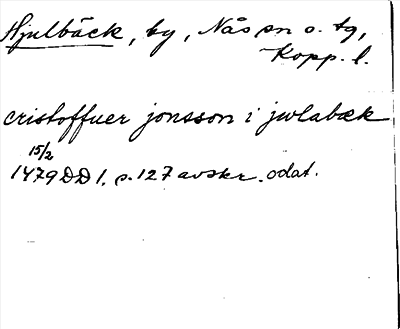 Hjulbäck, by, Nås sn o. tg,
Kopp. l.
cristoffuer jonsson i jwlabæk
15/2
1479 DD 1. s. 127 avskr. odat.